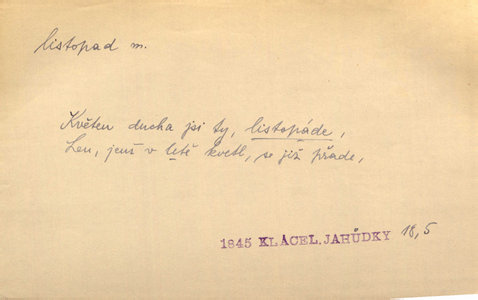 listopad m.
Květen ducha jsi ty, listopáde,
Len, jenž v letě kvetl, se již přade,
1845 KLÁCEL, JAHŮDKY 18,5